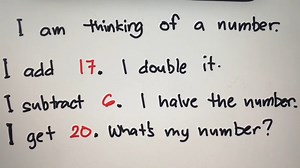 I am thinking of a number.
I add 17. I double it.
I subtract 6. I halve the number.
I get 20. What's my number?